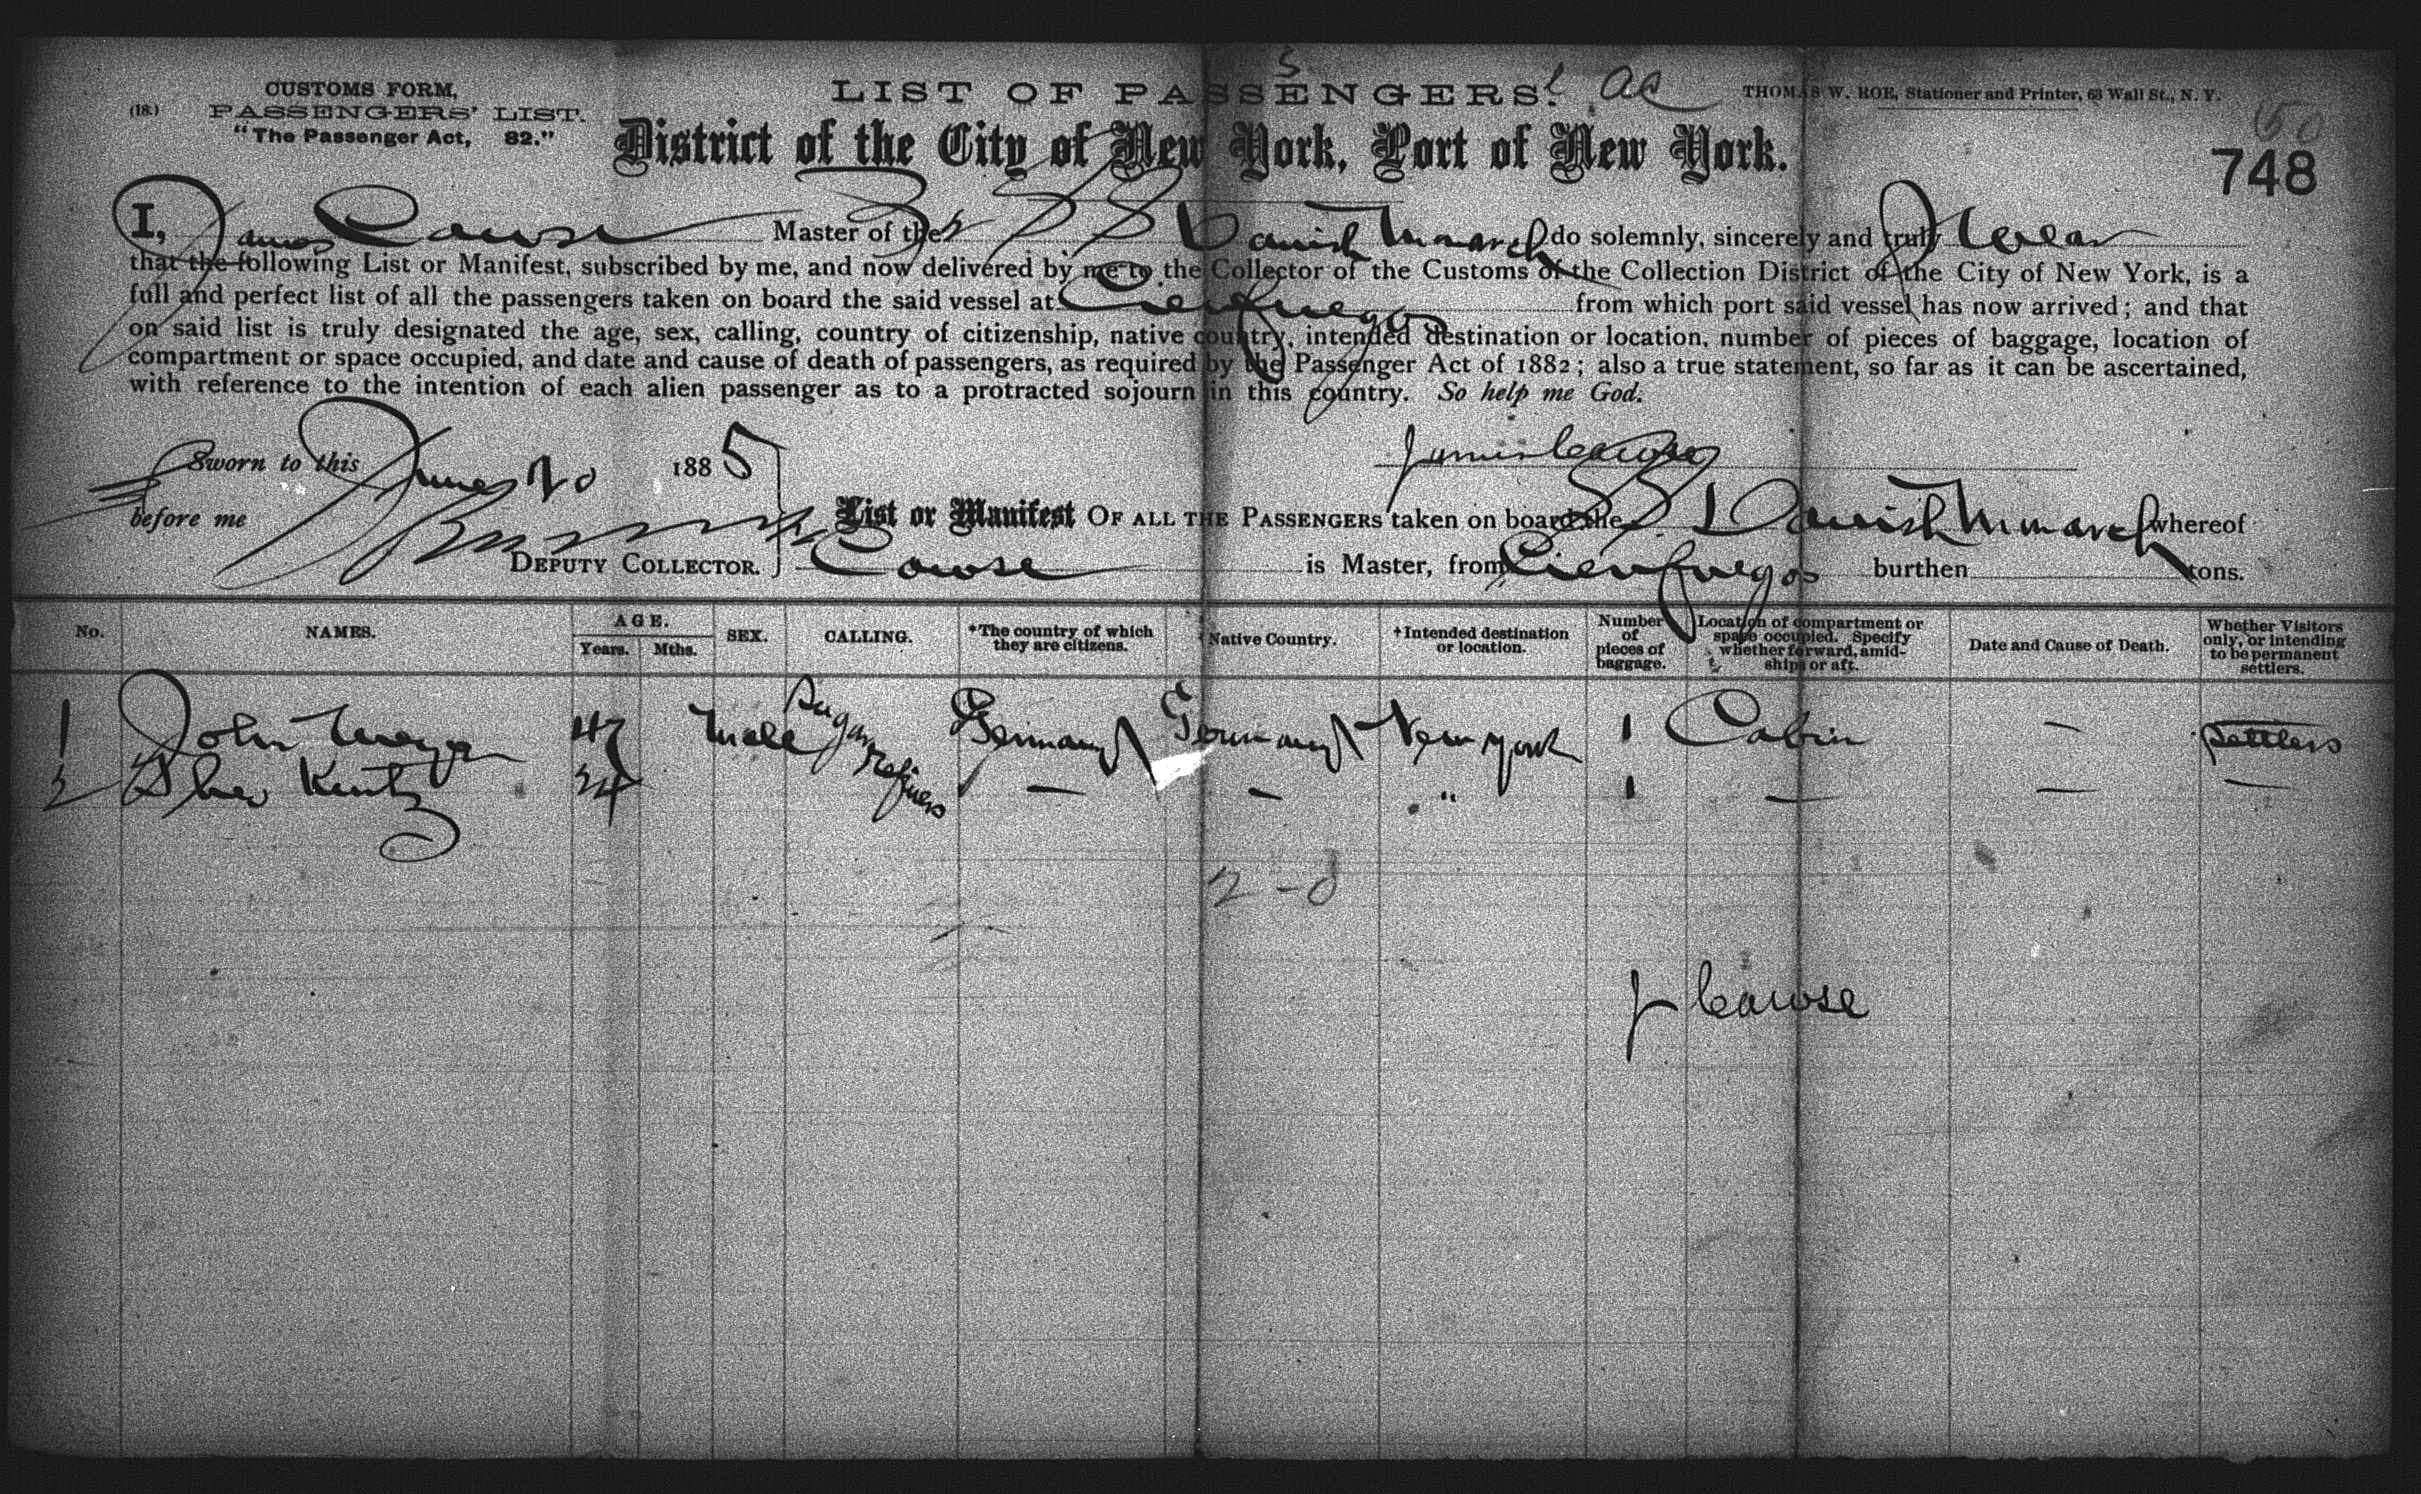 (18.)
CUSTOMS FORM,
PASSENGERS' LIST.
"The Passenger Act, 82."
LIST OF PASSENGERS.
THOMAS W. ROE, Stationer and Printer, 63 Wall St., N. Y.
District of the City of New York, Port of New York.
748
I, James Cawse Master of the Br S S Danish Monarch do solemnly, sincerely and truly swear
that the following List or Manifest, subscribed by me, and now delivered by me to the Collector of the Customs of the Collection District of the City of New York, is a
full and perfect list of all the passengers taken on board the said vessel at Cienfuegos from which port said vessel has now arrived; and that
on said list is truly designated the age, sex, calling, country of citizenship, native country, intended destination or location, number of pieces of baggage, location of
compartment or space occupied, and date and cause of death of passengers, as required by the Passenger Act of 1882; also a true statement, so far as it can be ascertained,
with reference to the intention of each alien passenger as to a protracted sojourn in this country. So help me God.
Sworn to this June 20 1885
James Cawse
before me
DEPUTY COLLECTOR.
List or Manifest OF ALL THE PASSENGERS taken on board the S.S. Danish Monarch whereof
Cawse is Master, from Cienfuegos burthen tons.
No. NAMES. AGE. Years. Mths. SEX. CALLING. *The country of which they are citizens. Native Country. +Intended destination or location. Number of pieces of baggage. Location of compartment or space occupied. Specify whether forward, amidships or aft. Date and Cause of Death. Whether Visitors only, or intending to be permanent settlers.
1 John Meyer 47 Male Sugar Refiners Germany Germany New York 1 Cabin — Settlers
2 Kentz 24 — — " 1 — — —
2 - 0
J Cawse